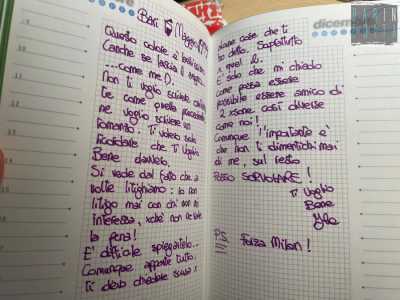 Bari 18 Maggio
Questo colore è bellissimo
(anche se lascia il segno
...come me!).
Non ti voglio scrivere
te come quella precedente
ne voglio scrivere un
romanzo. Ti volevo solo
ricordare che Ti Voglio
Bene davvero.
Si vede dal fatto che a
volte litighiamo: io con
litigo mai con chi non mi
interessa, xché non ne vale
la pena!
E' difficile spiegartelo...
Comunque apparte tutto,
Ti devo chiedere scusa x
alcune cose che ti
ho detto. Soprattutto
x quel 2.
E' solo che mi chiedo
come possa essere
possibile essere amico di
2 xsone così diverse
come noi!
Comunque l'importante è
che non ti dimentichi mai
di me, sul resto
POSSO SORVOLARE!
Ti Voglio
Bene
P.S. Forza Milan!
dicembre
10
11
12
13
14
15
16
17
18
19